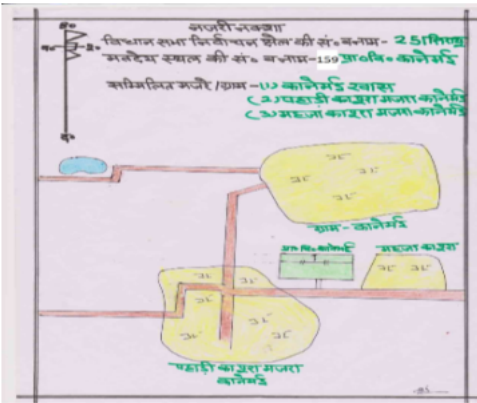 नजरी नक्शा
विधान सभा निर्वाचन क्षेत्र की सं० व नाम- 251
मतदेय स्थल की सं० व नाम-159 प्रा० वि० कानेमई
सम्मिलित मजरे / ग्राम -(1) कानेमई खास
(2) पहाड़ी का पुरा मजरा कानेमई
(3) का पुरा मजरा कानेमई
उ०
प० पू०
द०
ग्राम - कानेमई
प्रा० वि० कानेमई
का पुरा
पहाड़ी का पुरा मजरा
कानेमई